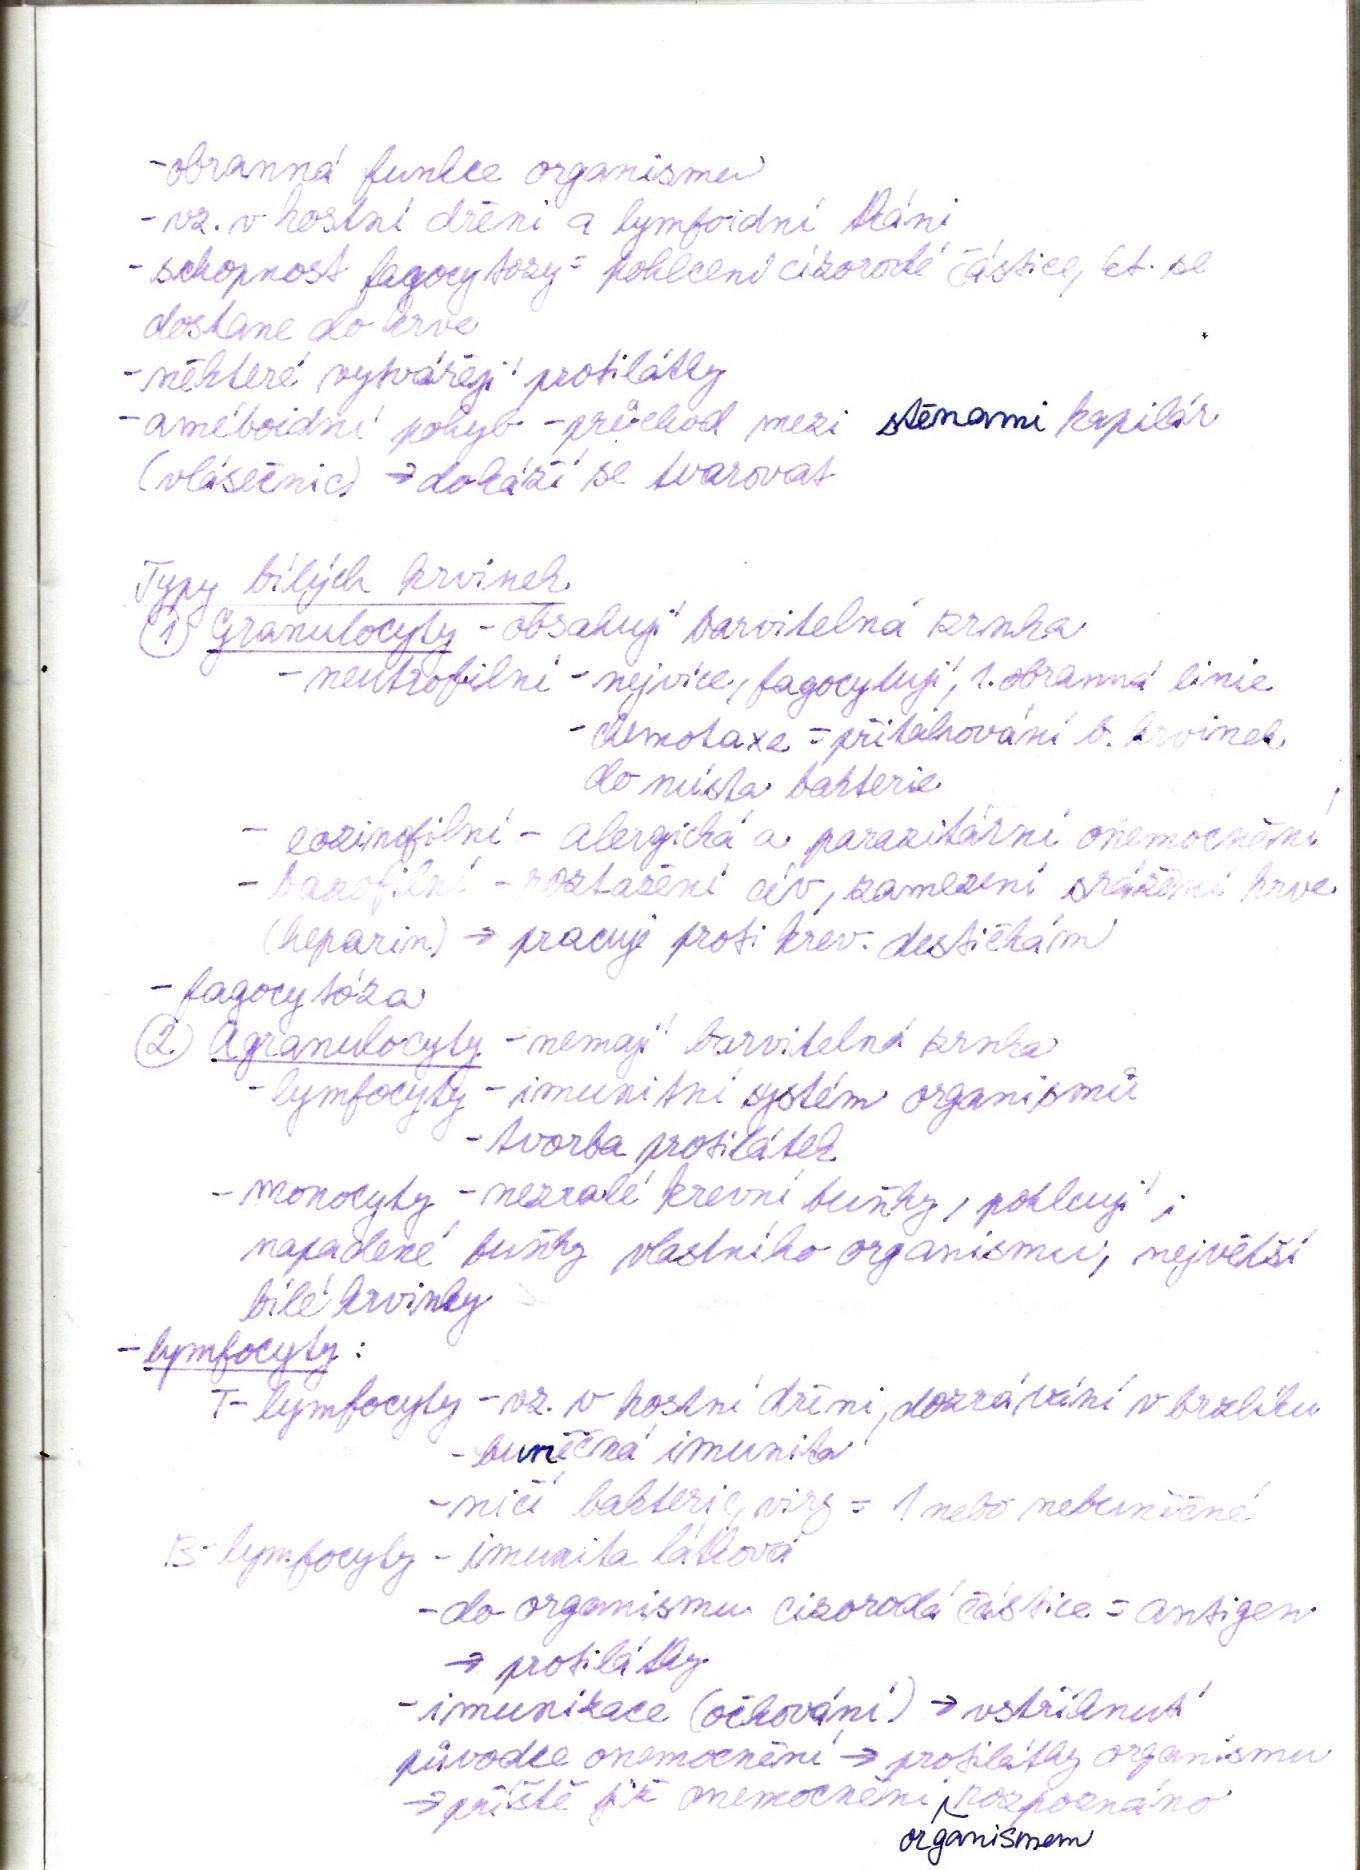 - obranná funkce organismu
- vz. v kostní dřeni a lymfoidní tkáni
- schopnost fagocytozy = pohlcení cizorodé částice, kt. se
dostane do krve
- některé vytvářejí protilátky
- améboidní pohyb - průchod mezi stěnami kapilár
(vlásečnic) → dokáží se tvarovat
Typy bílých krvinek
① Granulocyty - obsahují barvitelná zrnka
- neutrofilní - nejvíce, fagocytují, 1. obranná linie
- chemotaxe = přitahování b. krvinek
do místa bakterie
- eozinofilní - alergická a parazitární onemocnění
- bazofilní - roztažení cév, zamezení srážení krve
(heparin) → pracuje proti krev. destičkám
- fagocytóza
② Agranulocyty - nemají barvitelná zrnka
- lymfocyty - imunitní systém organismů
- tvorba protilátek
- monocyty - nezralé krevní buňky, pohlcují i
napadené buňky vlastního organismu, největší
bílé krvinky
- lymfocyty:
T- lymfocyty - vz. v kostní dřeni, dozrávání v brzlíku
- buněčná imunita
- ničí bakterie, viry = 1 nebo nebuněčné
B- lymfocyty - imunita látková
- do organismu cizorodá částice = antigen
→ protilátky
- imunizace (očkování) → vstříknutí
původce onemocnění → protilátky organismu
→ příště již onemocnění rozpoznáno
organismem